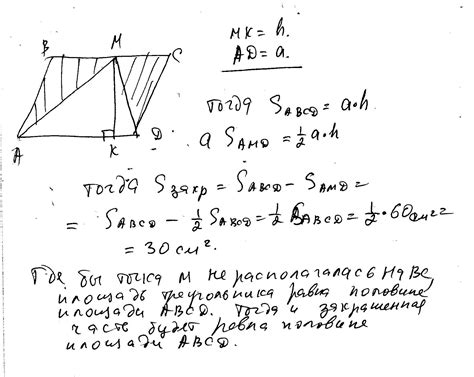 B M C
MK = h.
AD = a.
A K D
тогда S ABCD = a·h
а S AMD = 1/2 a·h
тогда S закр = S ABCD - S AMD =
= S ABCD - 1/2 S ABCD = 1/2 S ABCD = 1/2 · 60 см² =
= 30 см².
Где бы точка M не располагалась на BC,
площадь треугольника равна половине
площади ABCD. Тогда и закрашенная
часть будет равна половине
площади ABCD.